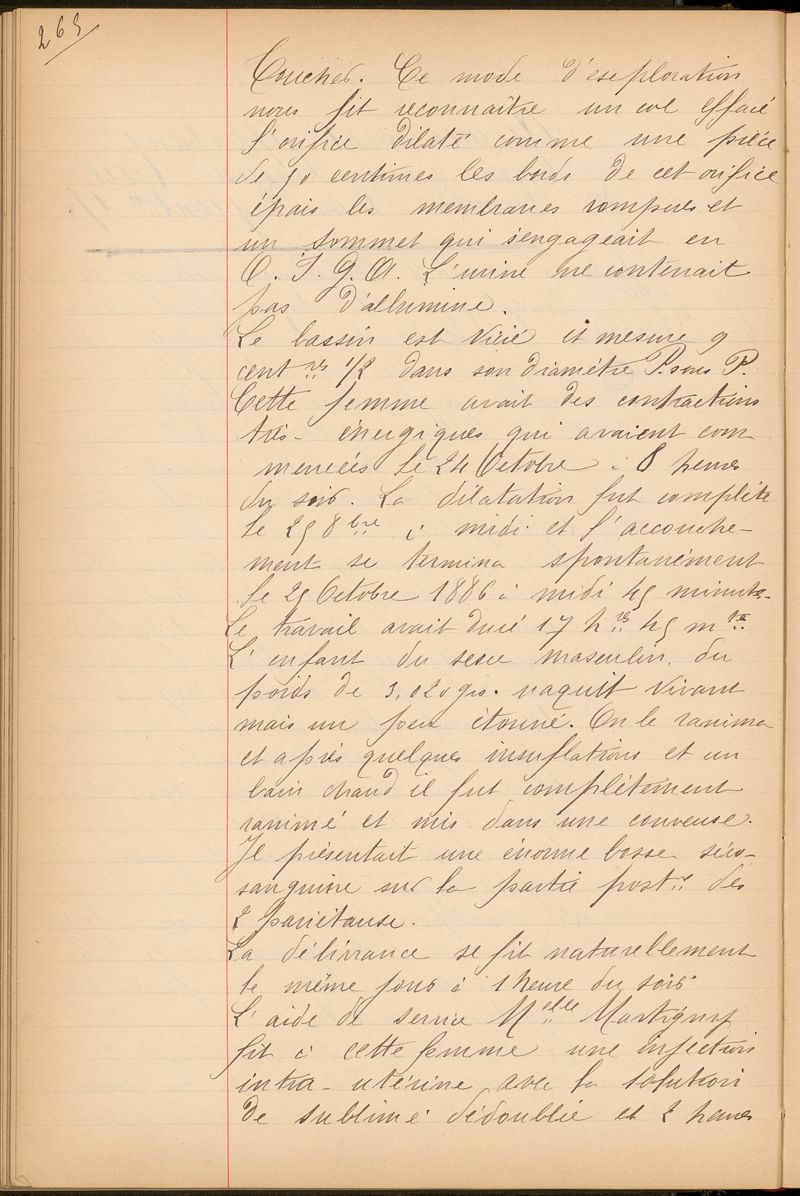 265
Toucher. Ce mode d'exploration
nous fit reconnaître un col effacé
l'orifice dilaté comme une pièce
de 50 centimes les bords de cet orifice
épais les membranes rompues et
un sommet qui s'engageait en
O. I. G. A. L'urine ne contenait
pas d'albumine.
Le bassin est vicié et mesure 9
cent res 1/2 dans son diamètre P. sous P.
Cette femme avait des contractions
très- énergiques qui avaient com-
mencées le 24 Octobre à 8 heures
du soir. La dilatation fut complète
le 25 8bre à midi et l'accouche-
ment se termina spontanément
le 25 Octobre 1886 à midi 45 minutes-
Le travail avait duré 17 hres 45 mtes
L'enfant du sexe masculin, du
poids de 3,020 grs. naquit vivant
mais un peu étonné. On le ranima
et après quelques insuflations et un
bain chaud il fut complètement
ranimé et mis dans une couveuse.
Il présentait une énorme bosse séro-
sanguine sur la partie postre des
2 pariétause.
La délivrance se fit naturellement
le même jour à 1 heure du soir.
L'aide de service Melle Martigny
fit à cette femme une injection
intra-utérine avec la solution
de sublimé dédoublée et 2 heures